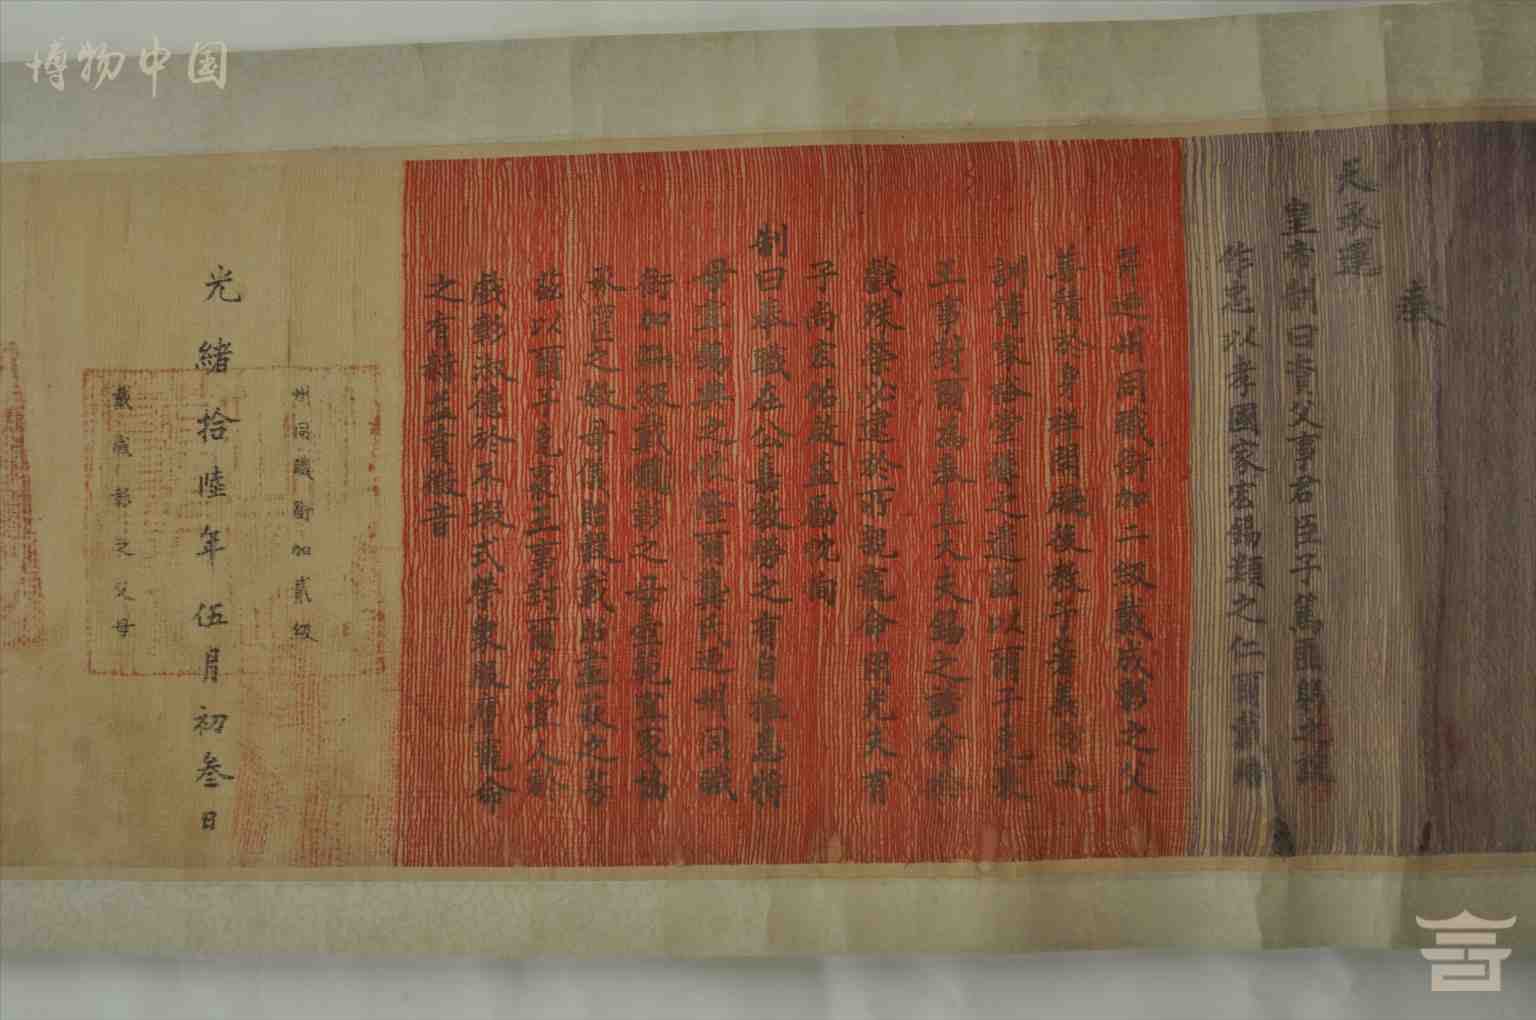 博物中国
奉
天承運
皇帝制曰資父事君臣子篤匪躬之誼
作忠以孝國家宏錫類之仁爾戴
同職銜加二級戴成彰之父
善積於身祥開厥後教子著義方之
訓傳家裕堂構之遺茲以爾子克襄
王事封爾為奉直大夫錫之誥命於
戲殊榮必逮於所親寵命用光夫有
子尚宏佑啟益勵忱恂
制曰奉職在公嘉教勞之有自推恩將
母宜錫典之攸隆爾龔氏州同職
銜加級戴成彰之母壼範宜家夙協
承筐之媺母儀詒穀載昭畫荻之芳
茲以爾子克襄王事封爾為宜人於
戲彰淑德於不瑕式榮象服膺寵命
之有赫益賁徽音
州同職銜加貳級
光緒拾陸年伍月初叁日
戴成彰之父母